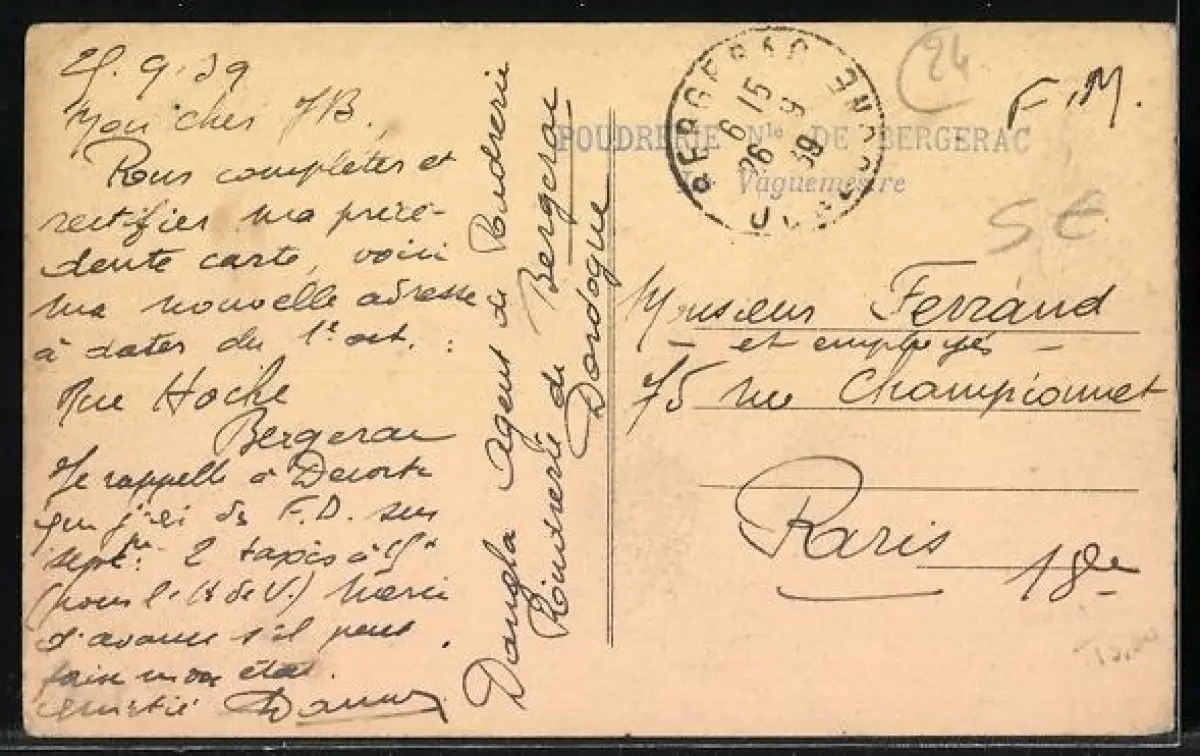 25.9.39
Mon cher JB.,
Pour compléter et
rectifier ma précé-
dente carte, voici
ma nouvelle adresse
à dater du 1er oct. :
Rue Hoche
Bergerac
Je rappelle à
que j'ai F.D. sur
sept. 2 tapis à
(pour V.) Merci
d'avance s'il peut
faire mon état.
amitié
Dangla agent de Poudrerie
Poudrerie de Bergerac
Dordogne
POUDRERIE Nle DE BERGERAC
Le Vaguemestre
BERGERAC DORDOGNE
6 15
26 9
39
24
F.M.
5 €
Monsieur Ferrand
- et employés -
75 rue Championnet
Paris
18e